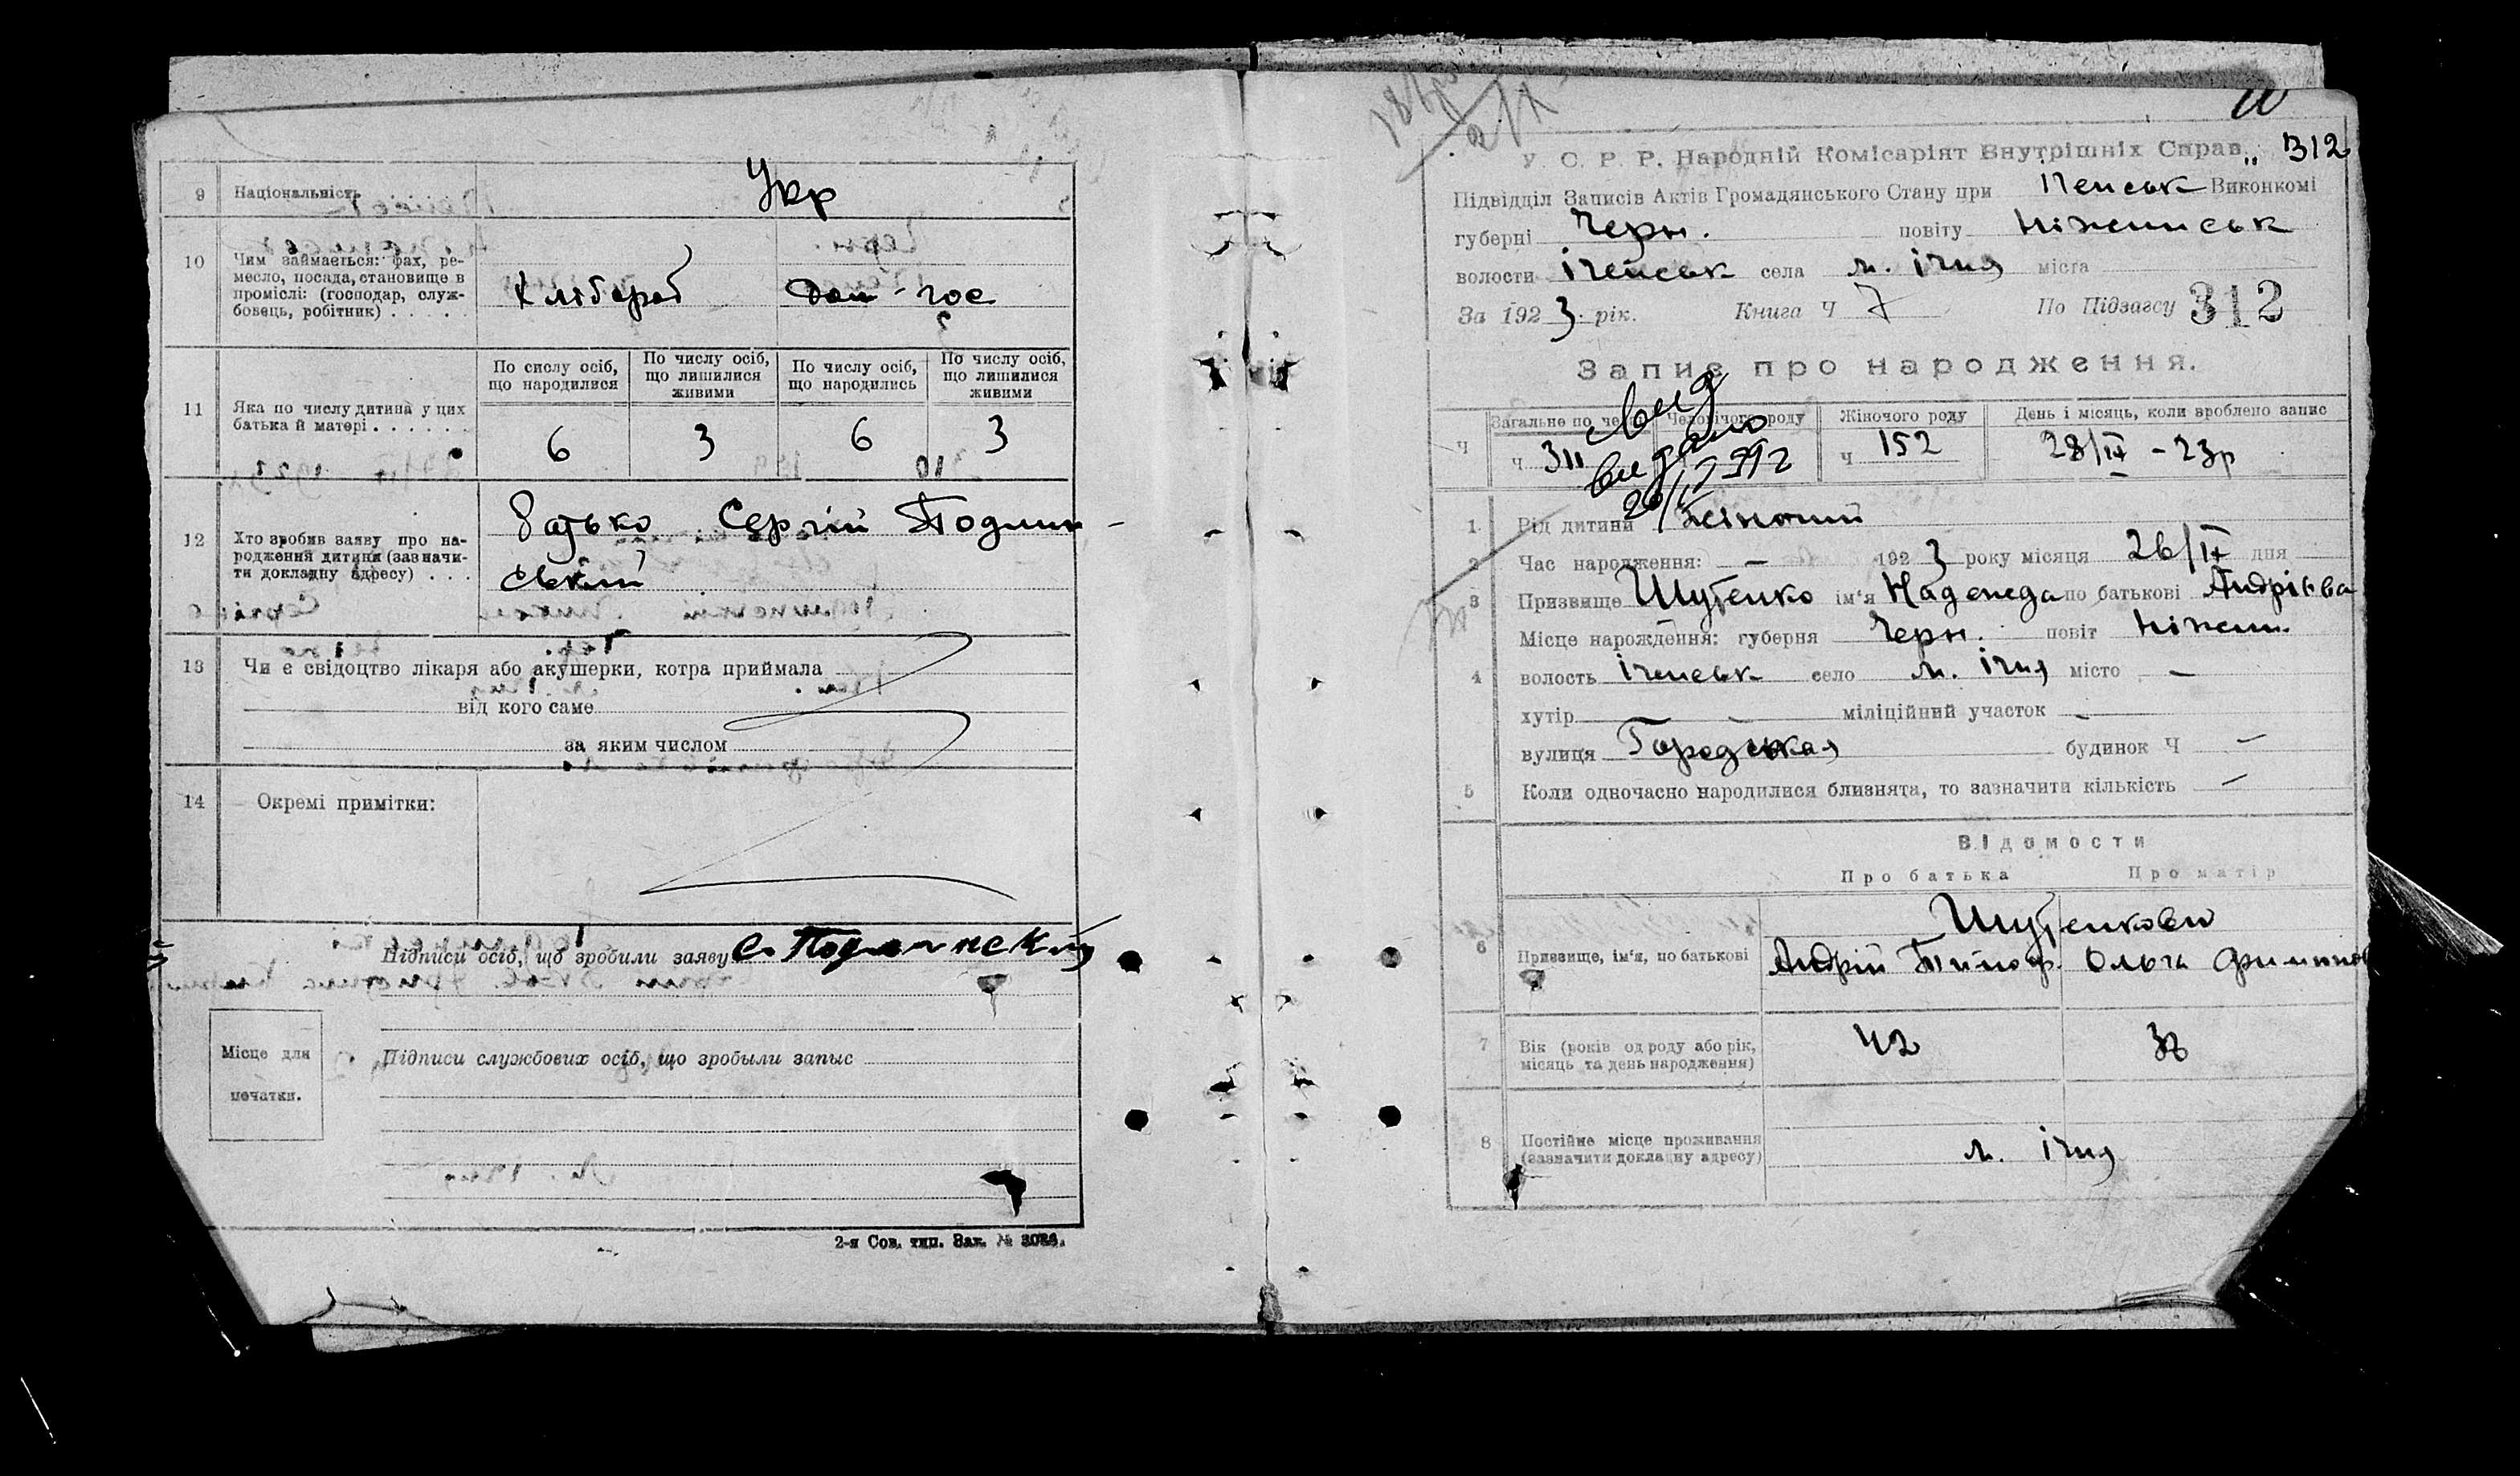 9 Національність Укр
10 Чим займається: фах, ре-
месло, посада, становище в
промислі: (господар, служ-
бовець, робітник) . . . . .
Хлібороб Дом-гос
11 Яка по числу дитина у цих
батька й матері . . . . . .
По сислу осіб,
що народилися
По числу осіб,
що лишилися
живими
По числу осіб,
що народились
По числу осіб,
що лишилися
живими
6 3 6 3
12 Хто зробив заяву про на-
родження дитини (зазначи-
ти докладну адресу) . . .
Батько Сергій Подмин-
ський
13 Чи є свідоцтво лікаря або акушерки, котра приймала
від кого саме
за яким числом
14 Окремі примітки:
Підписи осіб, що зробили заяву
Місце для
печатки.
Підписи службових осіб, що зробыли запыс
2-я Сов. тип. Зак. №
312
У. С. Р. Р. Народній Комісаріят Внутрішніх Справ
Підвідділ Записів Актів Громадянського Стану при Іченськ Виконкомі
губерні Черн. повіту Ніженськ
волости Іченськ села м. Ічня міста
За 1923 рік. Книга Ч 7 По Підзагсу 312
Запис про народження.
Ч Загальне по чер Чоловічого роду Жіночого роду День і місяць, коли зроблено запис
ч 311 ч 152 28/IX - 23р
видано
1992
1 Від дитини Жіночий
2 Час народження: — 1923 року місяця 26/IX дня
3 Призвище Шутенко ім'я Надежда по батькові Андрієва
4 Місце народження: губерня Черн. повіт Ніжен.
волость Іченськ село м. Ічня місто —
хутір — міліційний участок —
вулиця Городська будинок Ч —
5 Коли одночасно народилися близнята, то зазначити кількість —
Відомости
Про батька Про матір
6 Призвище, ім'я, по батькові
Шутенкови
Андрій Тимоф. Ольга
7 Вік (років од роду або рік,
місяць та день народження)
42
8 Постійне місце проживання
(зазначити докладну адресу)
м. Ічня